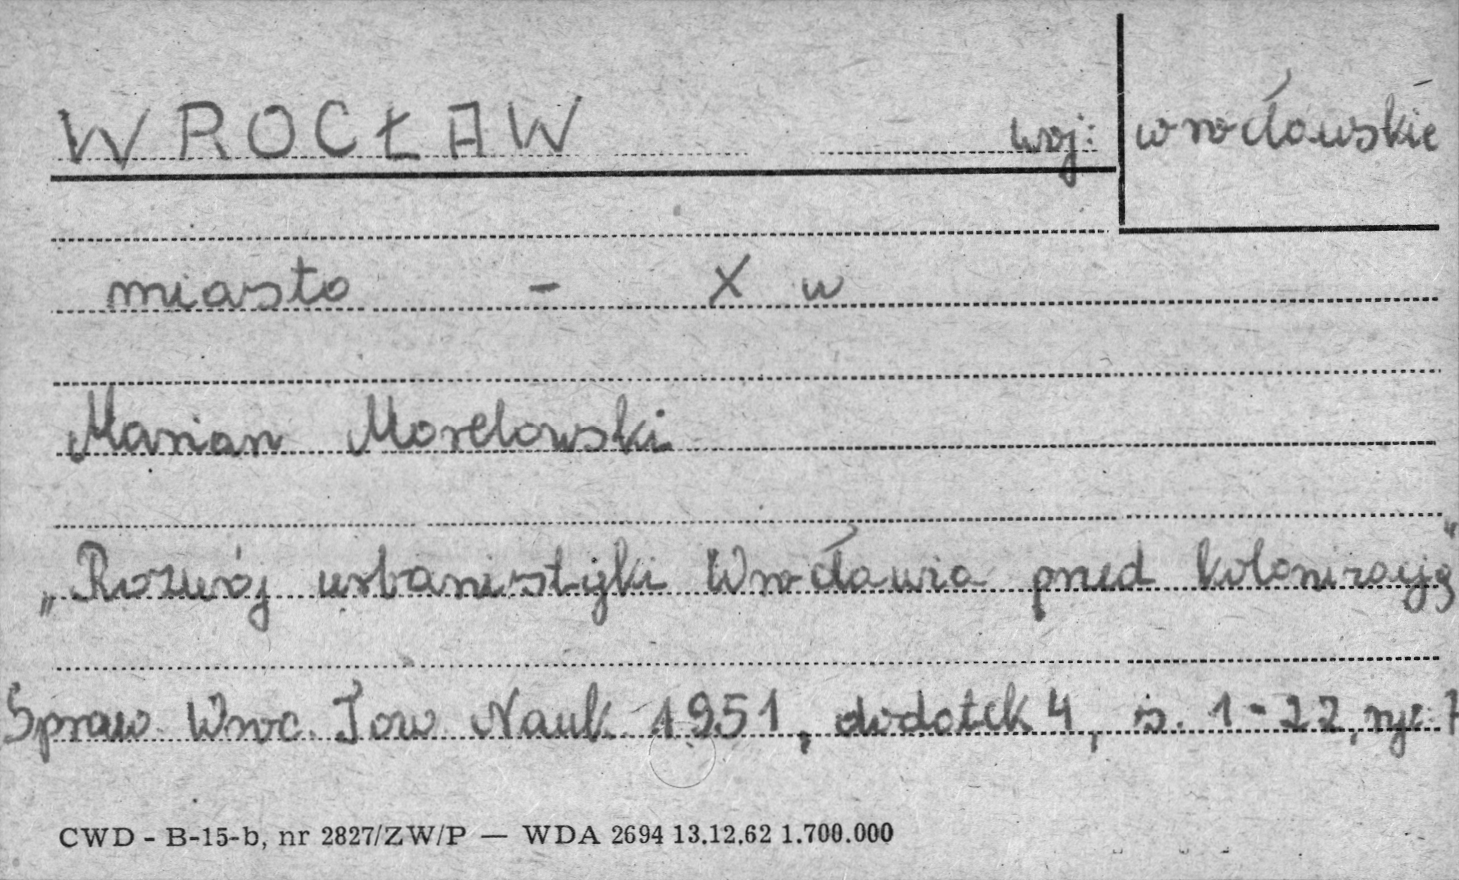 WROCŁAW woj: wrocławskie
miasto - X w
Marian Morelowski
„Rozwój urbanistyki Wrocławia przed kolonizacją"
Spraw. Wroc. Tow. Nauk. 1951, dodatek 4, s. 1-22, ryc. 7
CWD - B-15-b, nr 2827/ZW/P — WDA 2694 13.12.62 1.700.000